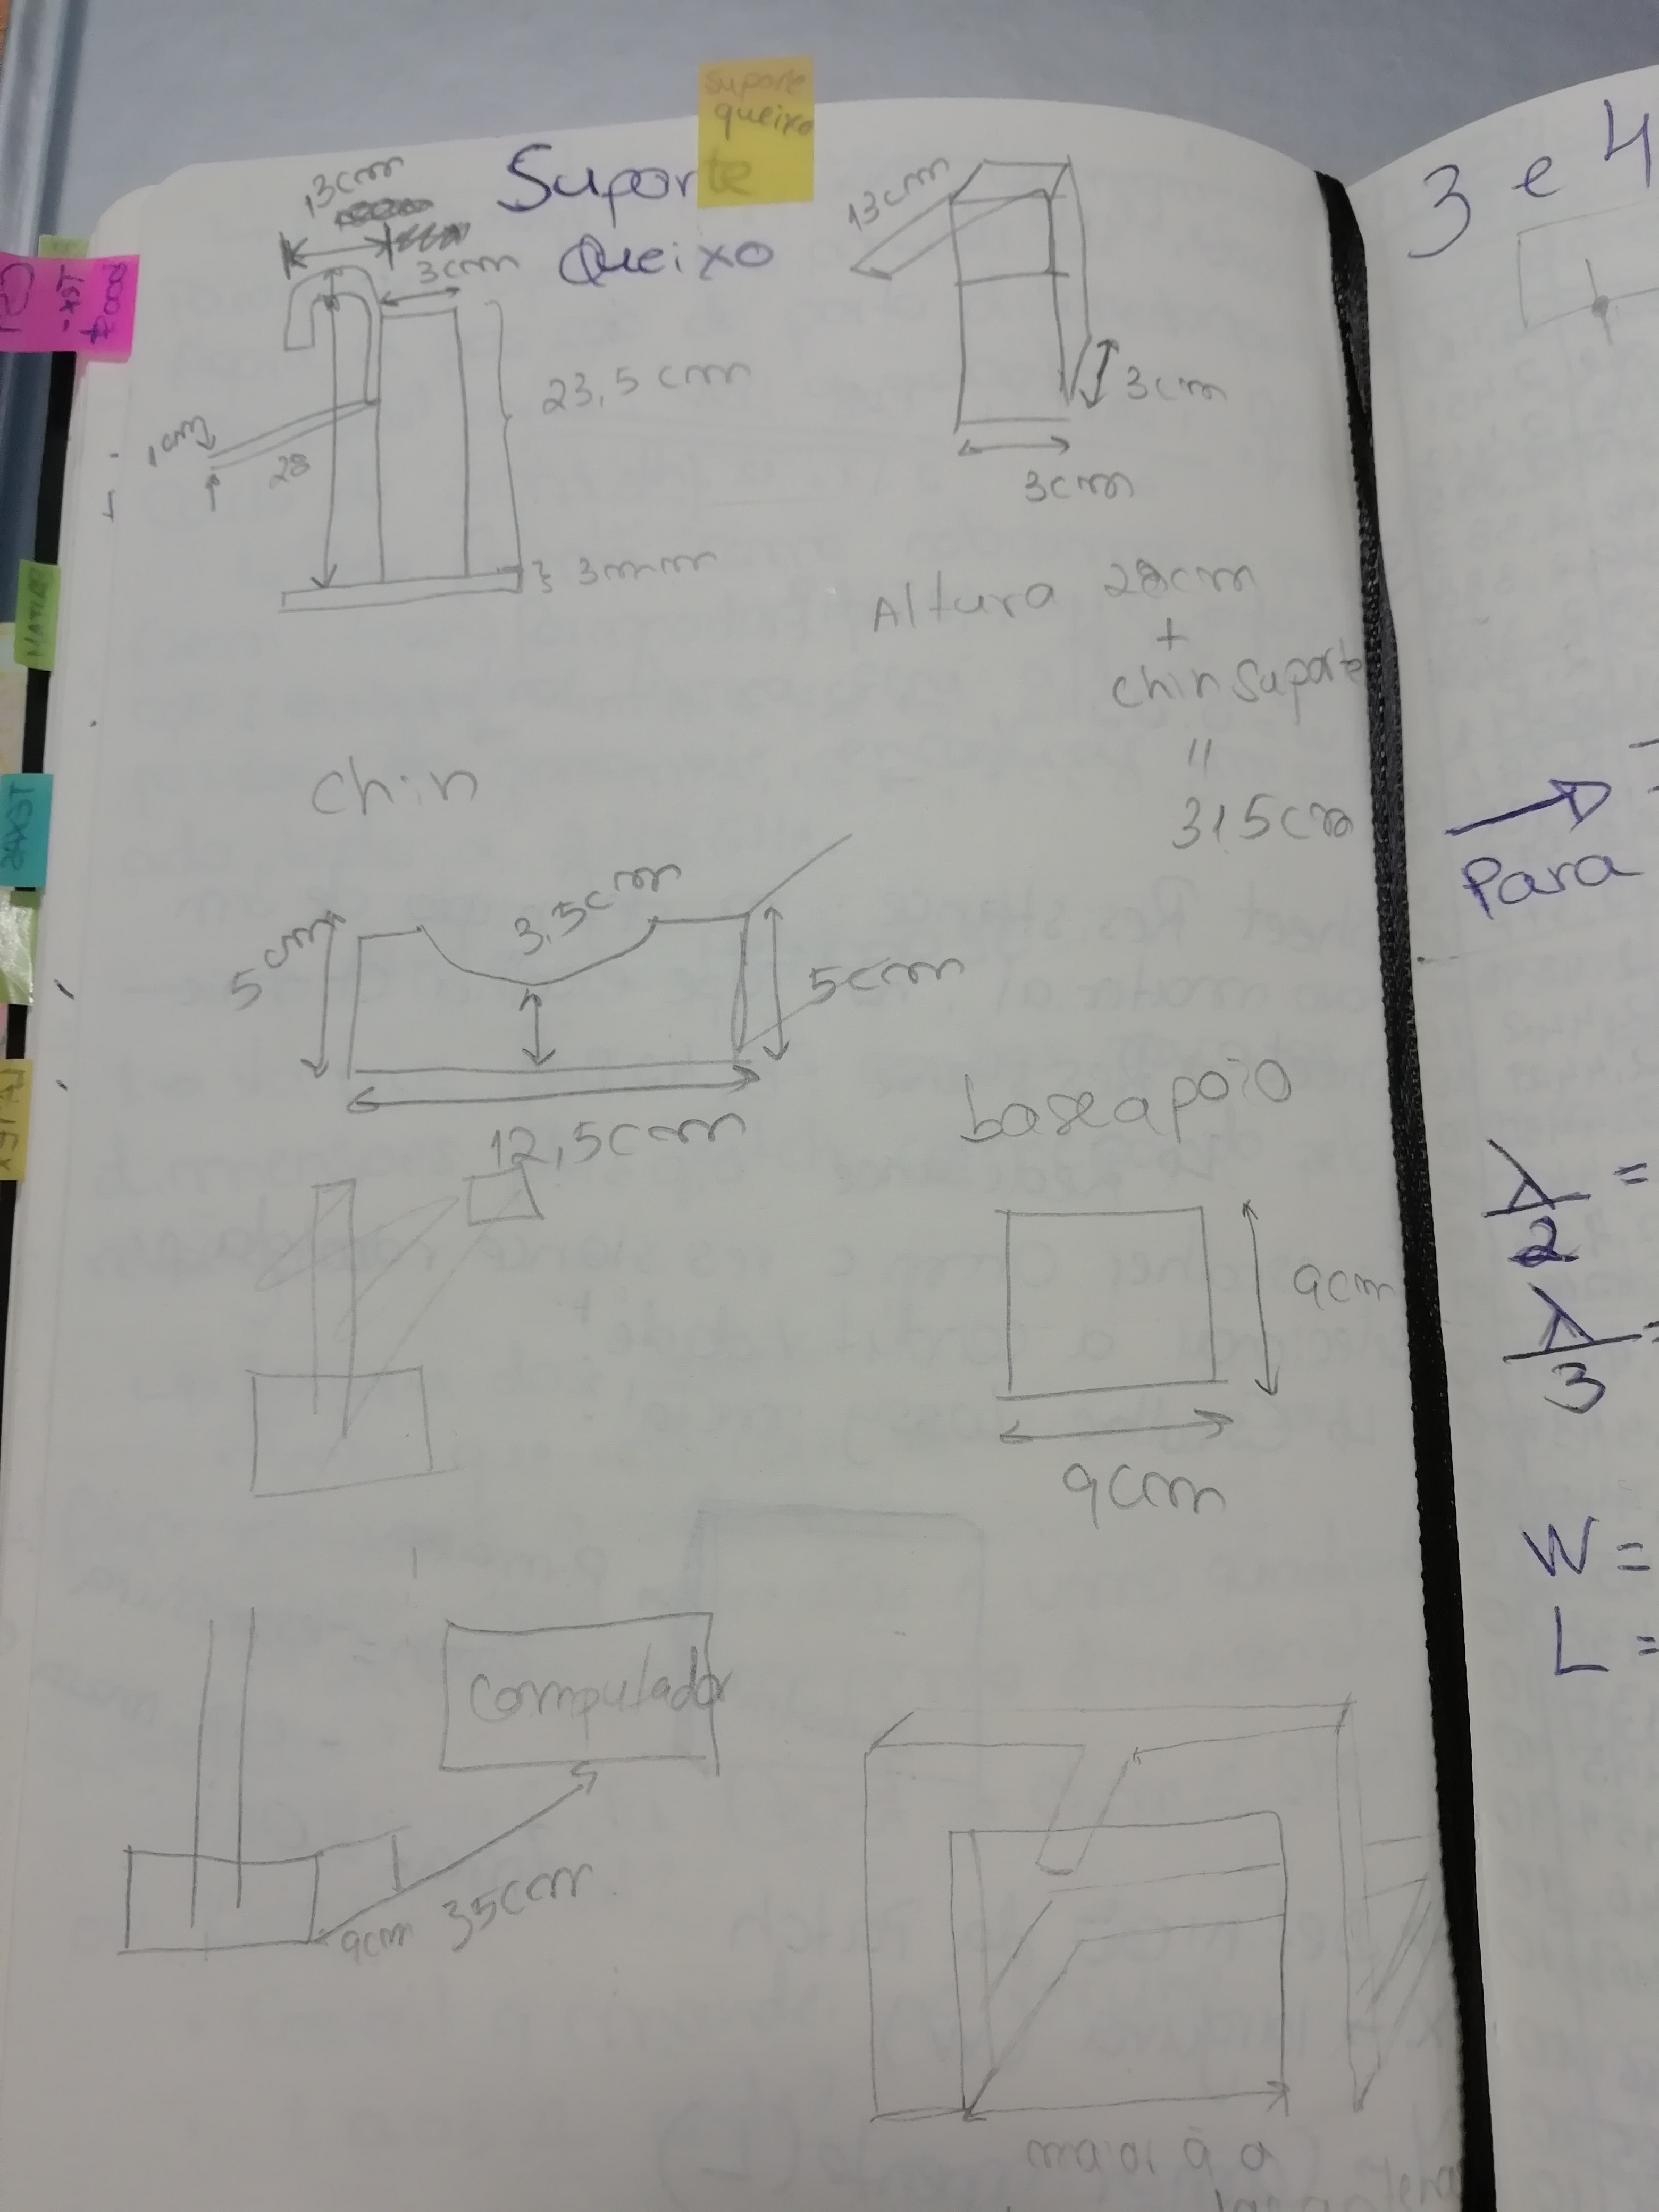 Suporte
queixo
Suporte
Queixo
13cm
3cm
23,5 cm
1cm
28
3mm
13cm
3cm
3cm
Altura 28cm
+
chin suporte
=
31,5cm
chin
5cm
3,5cm
5cm
12,5cm
base apoio
9cm
9cm
computador
9cm
35cm
3 e 4
Para
λ/2 =
λ/3 =
W =
L =